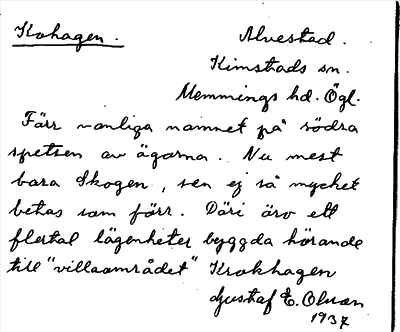 Kohagen.
Alvestad.
Kimstads sn.
Memmings hd. Ögl.
Förr vanliga namnet på södra
spetsen av ägorna. Nu mest
bara Skogen, sen ej så mycket
betas som förr. Däri äro ett
flertal lägenheter byggda hörande
till "villaområdet" Krokhagen
Gustaf E. Olsson
1937